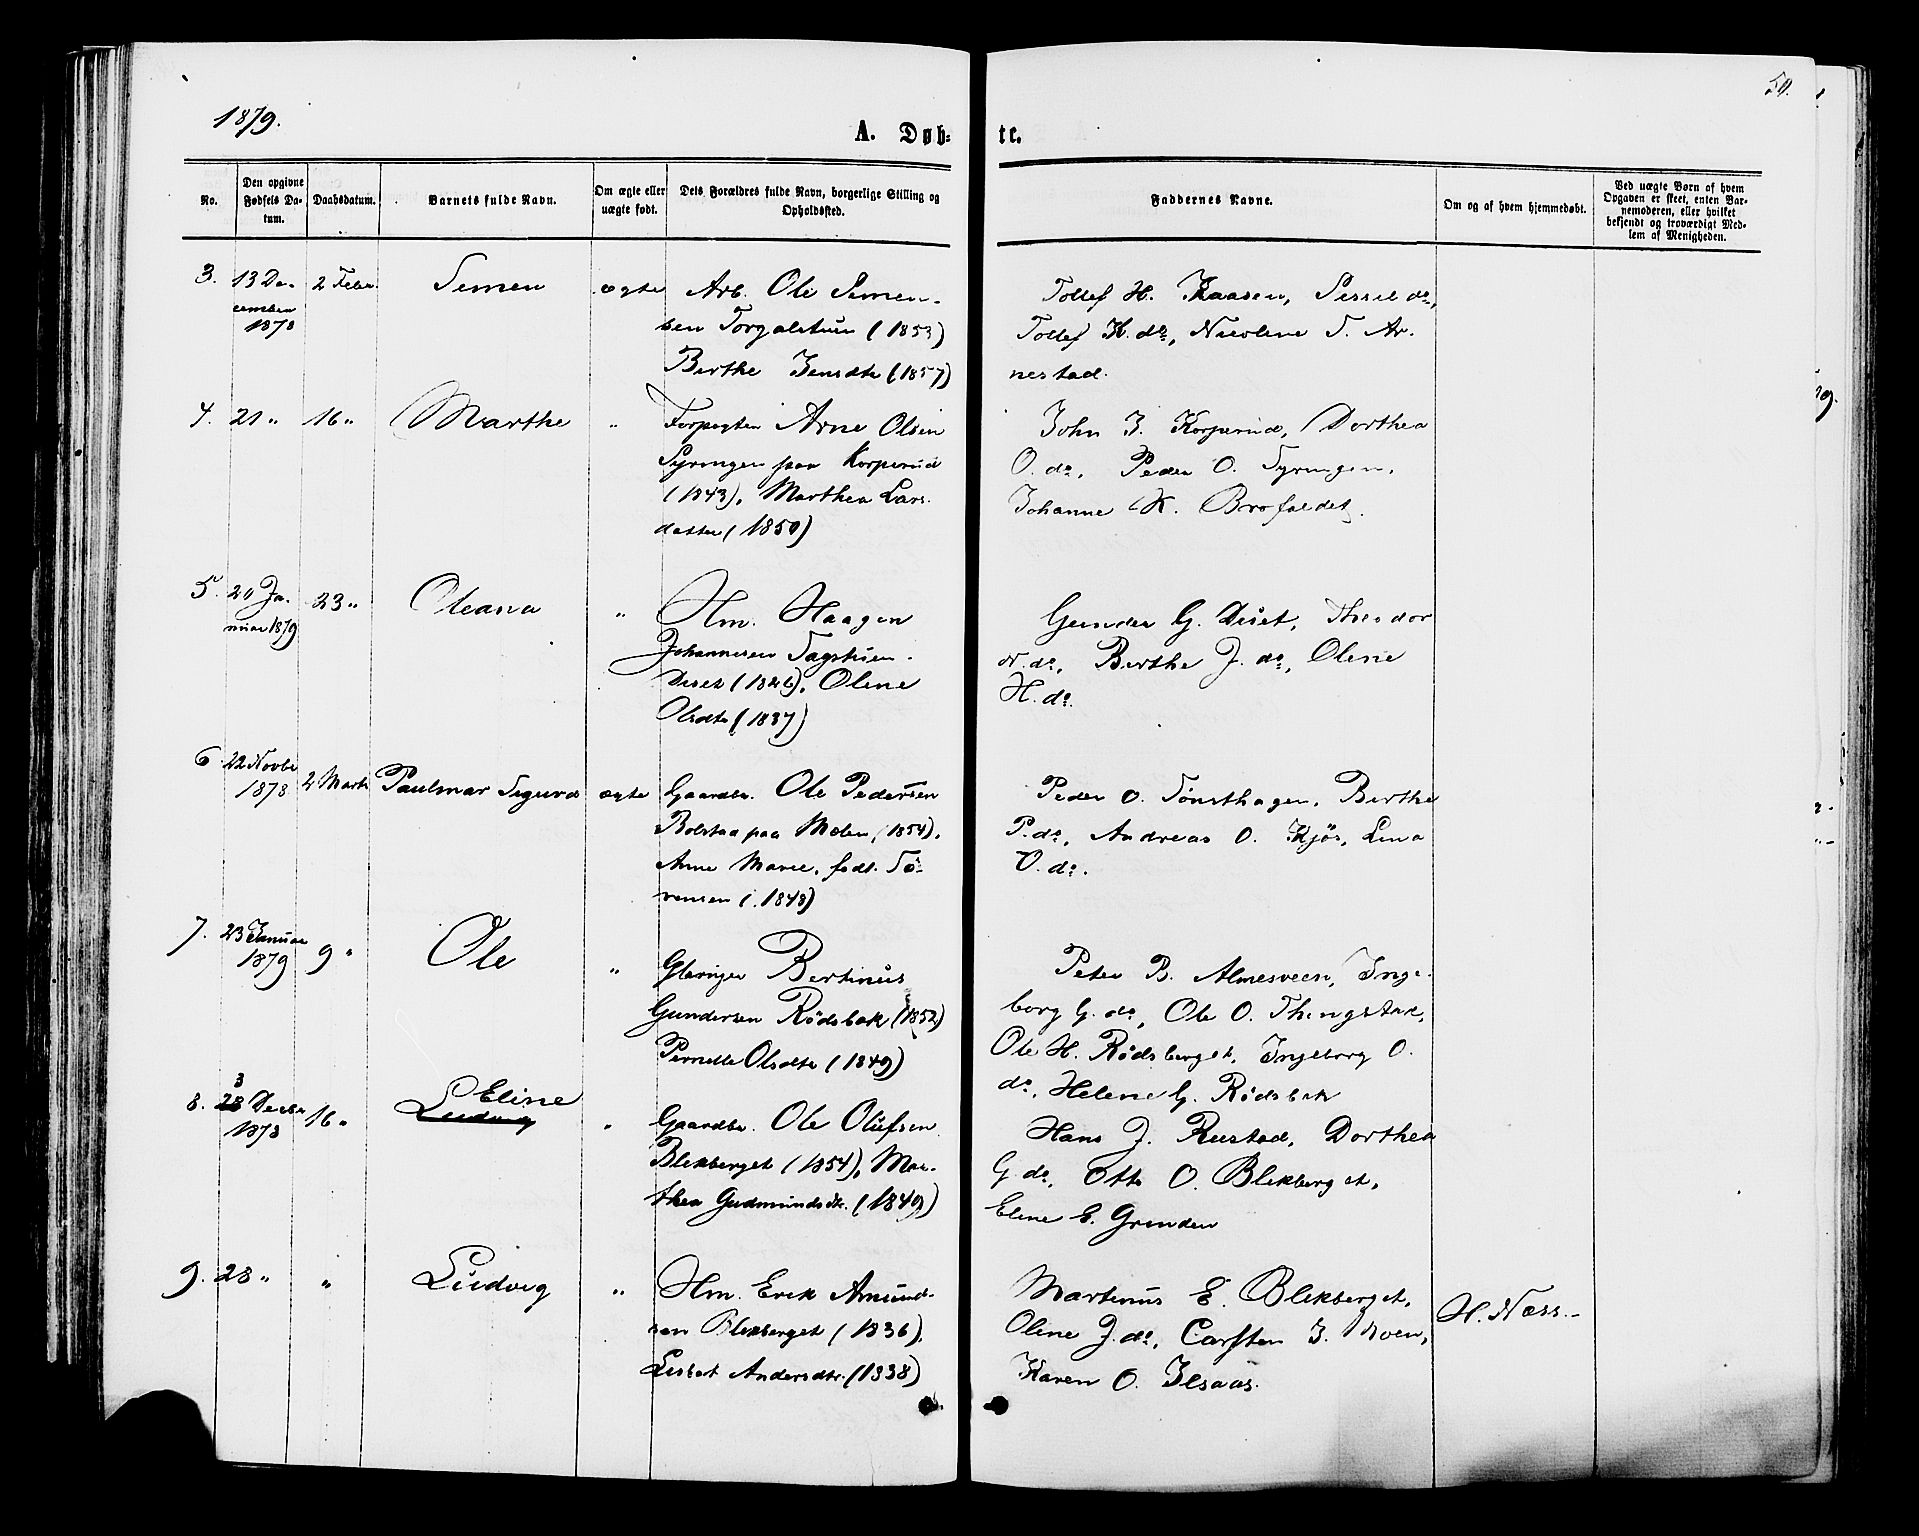 1879.
50.
A. Døb-
te.
No.
Den opgivne Fødsels Da-tum.
Daabsdatum.
Barnets fulde Navn.
Om ægte eller uægte født.
Dets Forældres fulde Navn, borgerlige Stilling og Opholdssted.
Faddernes Navne.
Om og af hvem hjemmedøbt.
Ved uægte Børn af hvem Opgaven er skeet, enten Bar-nemoderen, eller hvilket bekjendt og troværdigt Med-lem af Menigheden.
3. 13 De-
cember
1878
2 Febr.
Simen
ægte
Arb. Ole Simen-
sen Torgalstuen (1853)
Berthe Jensdtr (1857)
Tollef H. Kaasen, Sissel do,
Tollef K. do, Nicoline T. Ar-
nestad.
4. 21 "
16 "
Marthe
"
Forpagter Arne Olsen
Syringen paa Korperud
(1843), Marthea Lars-
datter (1850)
John J. Korperud, Dorthea
O. do, Peder O. Syringen,
Johanne K. Brofaldet.
5. 20 Ja-
nuar 1879
23 "
Oleana
"
Hm. Haagen
Johannesen Tagstuen-
Diset (1826), Olene
Olsdtr (1837)
Gunder G. Diset, Theodor
N. do, Berthe J. do, Olene
H. do.
6. 22 Novbr
1878
2 Marts
Paulmar Sigurd
ægte
Gaardbr. Ole Pedersen
Bolstad paa Molen (1854),
Anne Marie, født Sö-
rensen (1848)
Peder O. Tønsthagen, Berthe
P. do, Andreas O. Kjös, Lina
O. do.
7. 23 Januar
1879
9 "
Ole
"
Bertinus
Gundersen Rødsbak (1852)
Pernelle Olsdtr (1849)
Peter B. Almesveen, Inge-
borg G. do, Ole O. Thingstad,
Ole H. Rødsberget, Ingeborg O.
do, Helene G. Rødsbak
8. 3
28 Decbr
1878
16 "
Eline
Ludvig
"
Gaardbr. Ole Olufsen
Blekberget (1854), Mar-
thea Gudmundsdtr. (1849)
Hans J. Rustad, Dorthea
G. do, Otto O. Blekberget,
Eline E. Grinden
9. 28 "
"
Ludvig
"
Hm. Erik Amund-
sen Blekberget (1836),
Lisbet Andersdtr. (1838)
Martinus E. Blekberget,
Oline J. do, Carsten J. Moen,
Karen O. Ilsaas.
H. Næss.